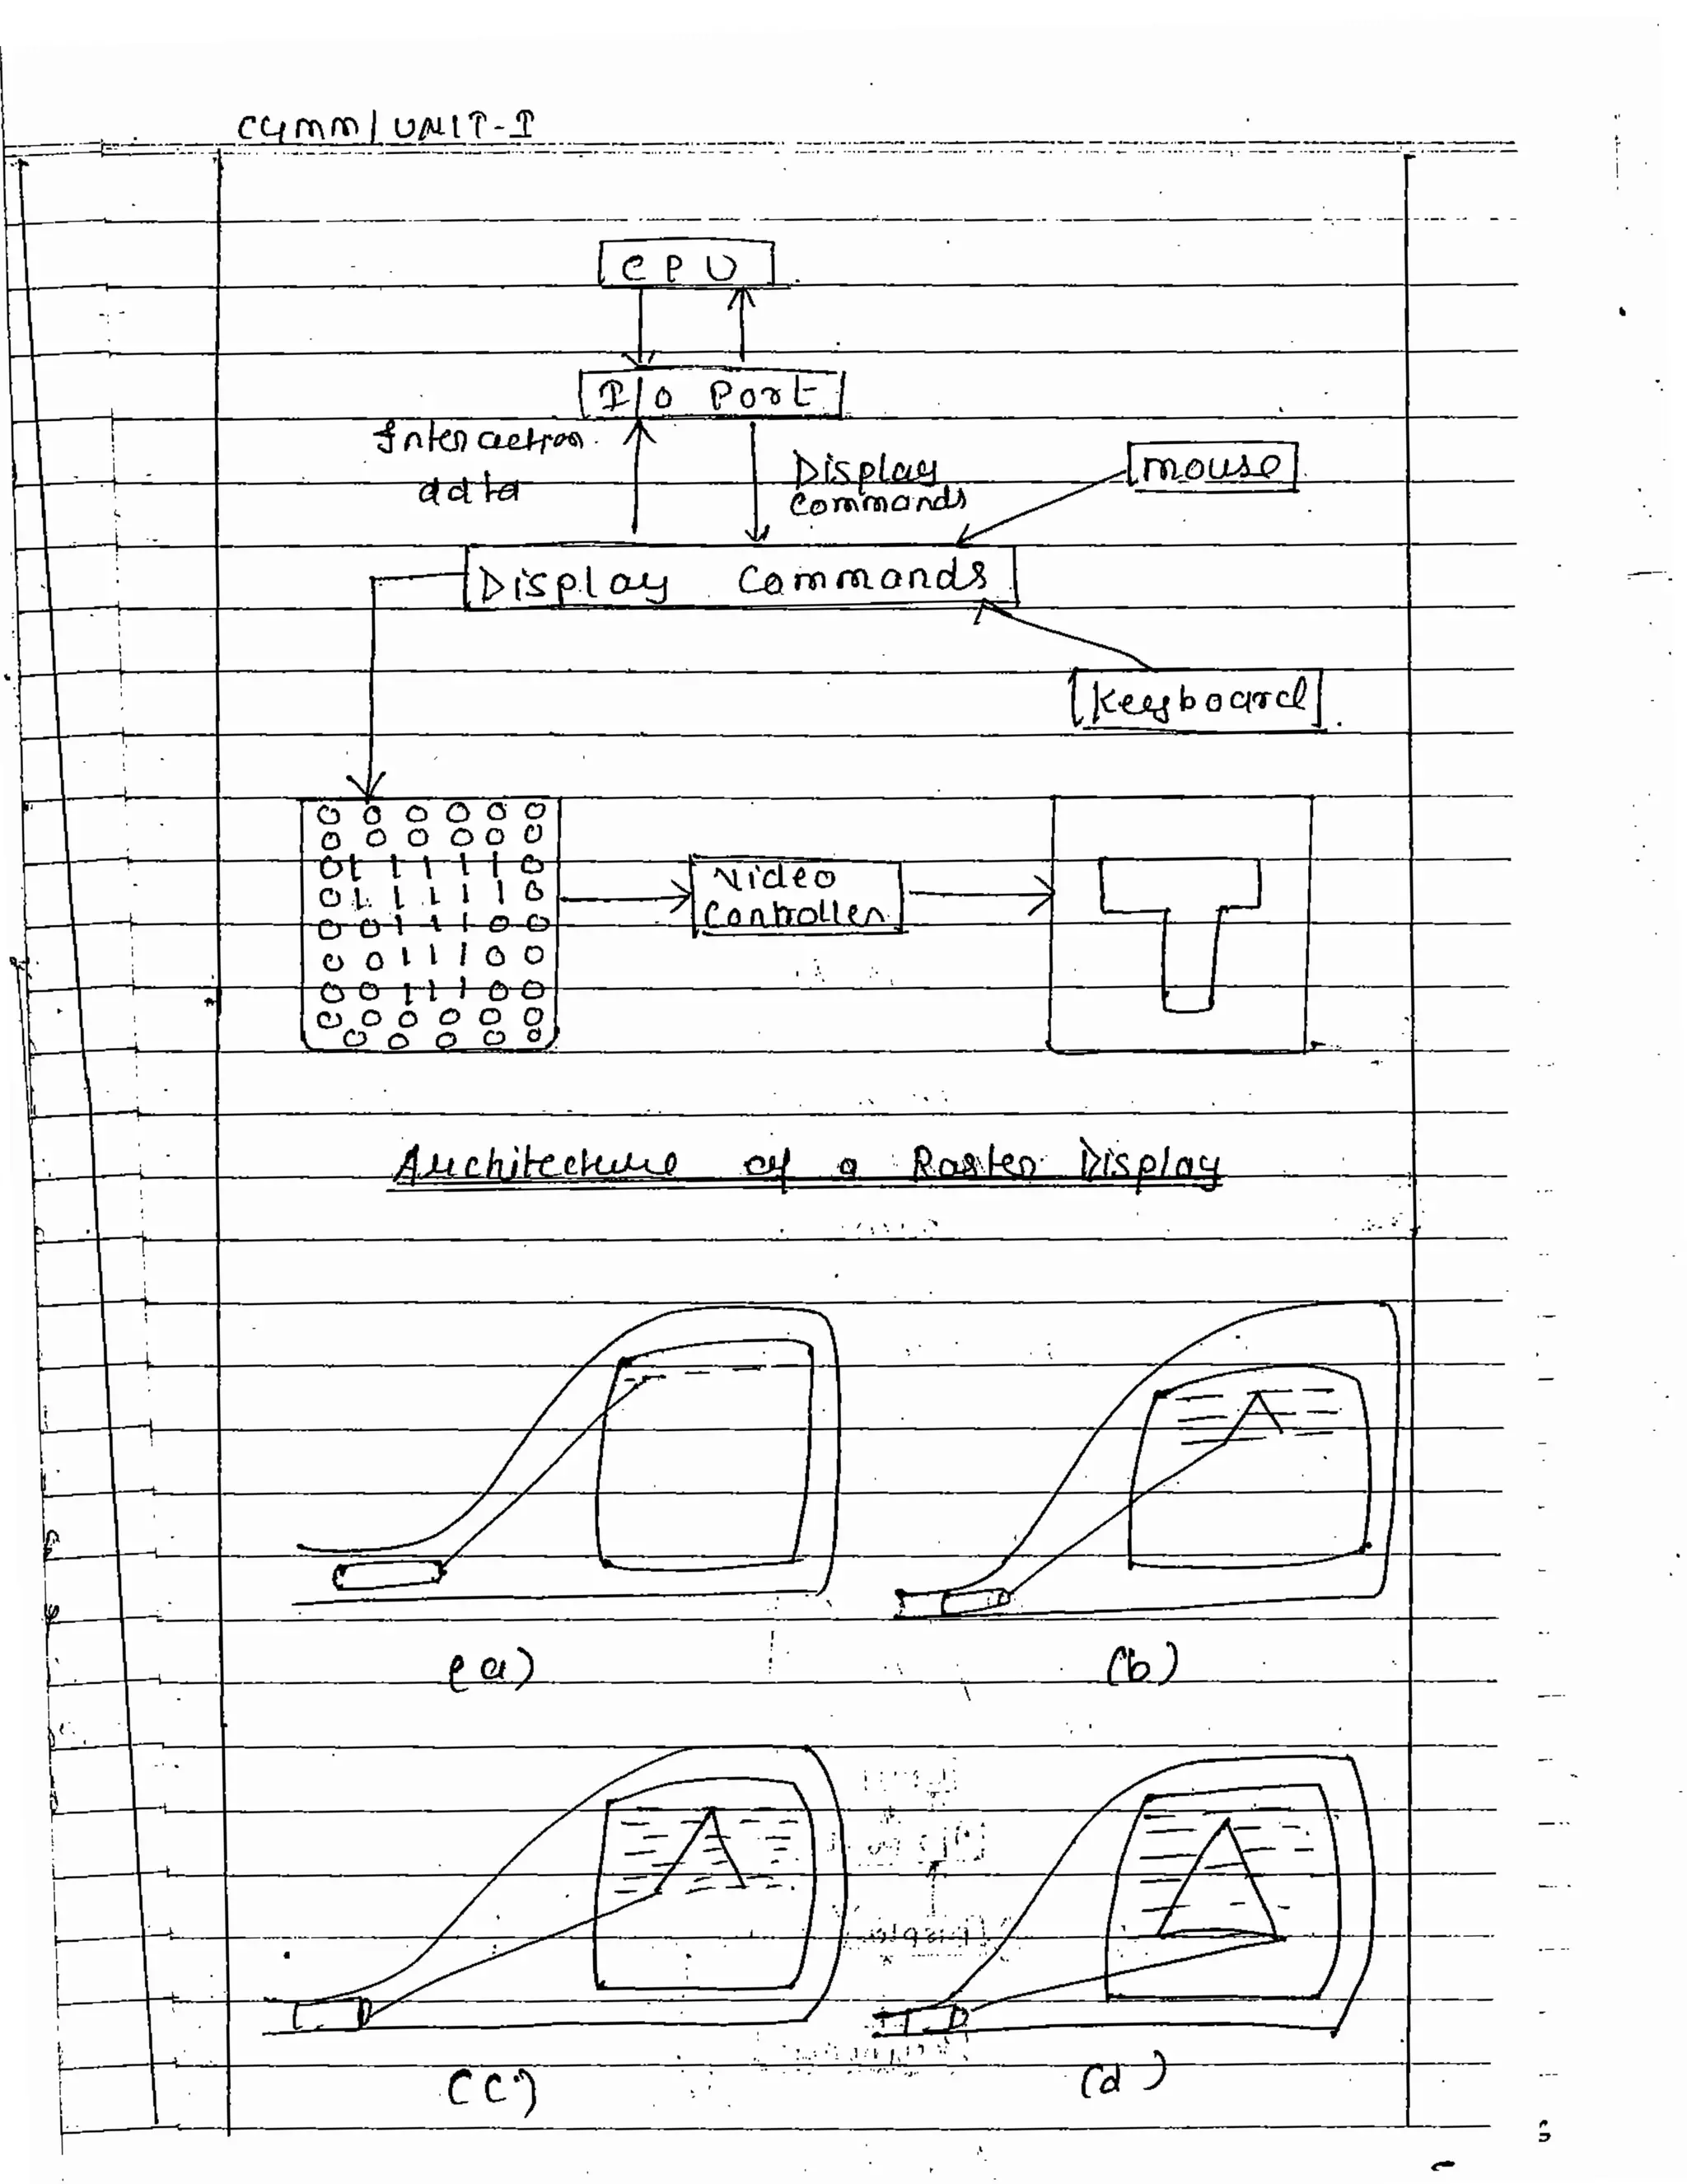 CGMM/UNIT-I
CPU
I/O Port
Interaction
data
Display
Commands
mouse
Display Commands
Keyboard
0 0 0 0 0 0
0 0 0 0 0 0
0 1 1 1 1 1 0
0 1 1 1 1 1 0
0 0 1 1 1 0 0
0 0 1 1 1 0 0
0 0 1 1 1 0 0
0 0 0 0 0 0
0 0 0 0 0
Video
Controller
Architecture of a Raster Display
(a)
(b)
(c)
(d)